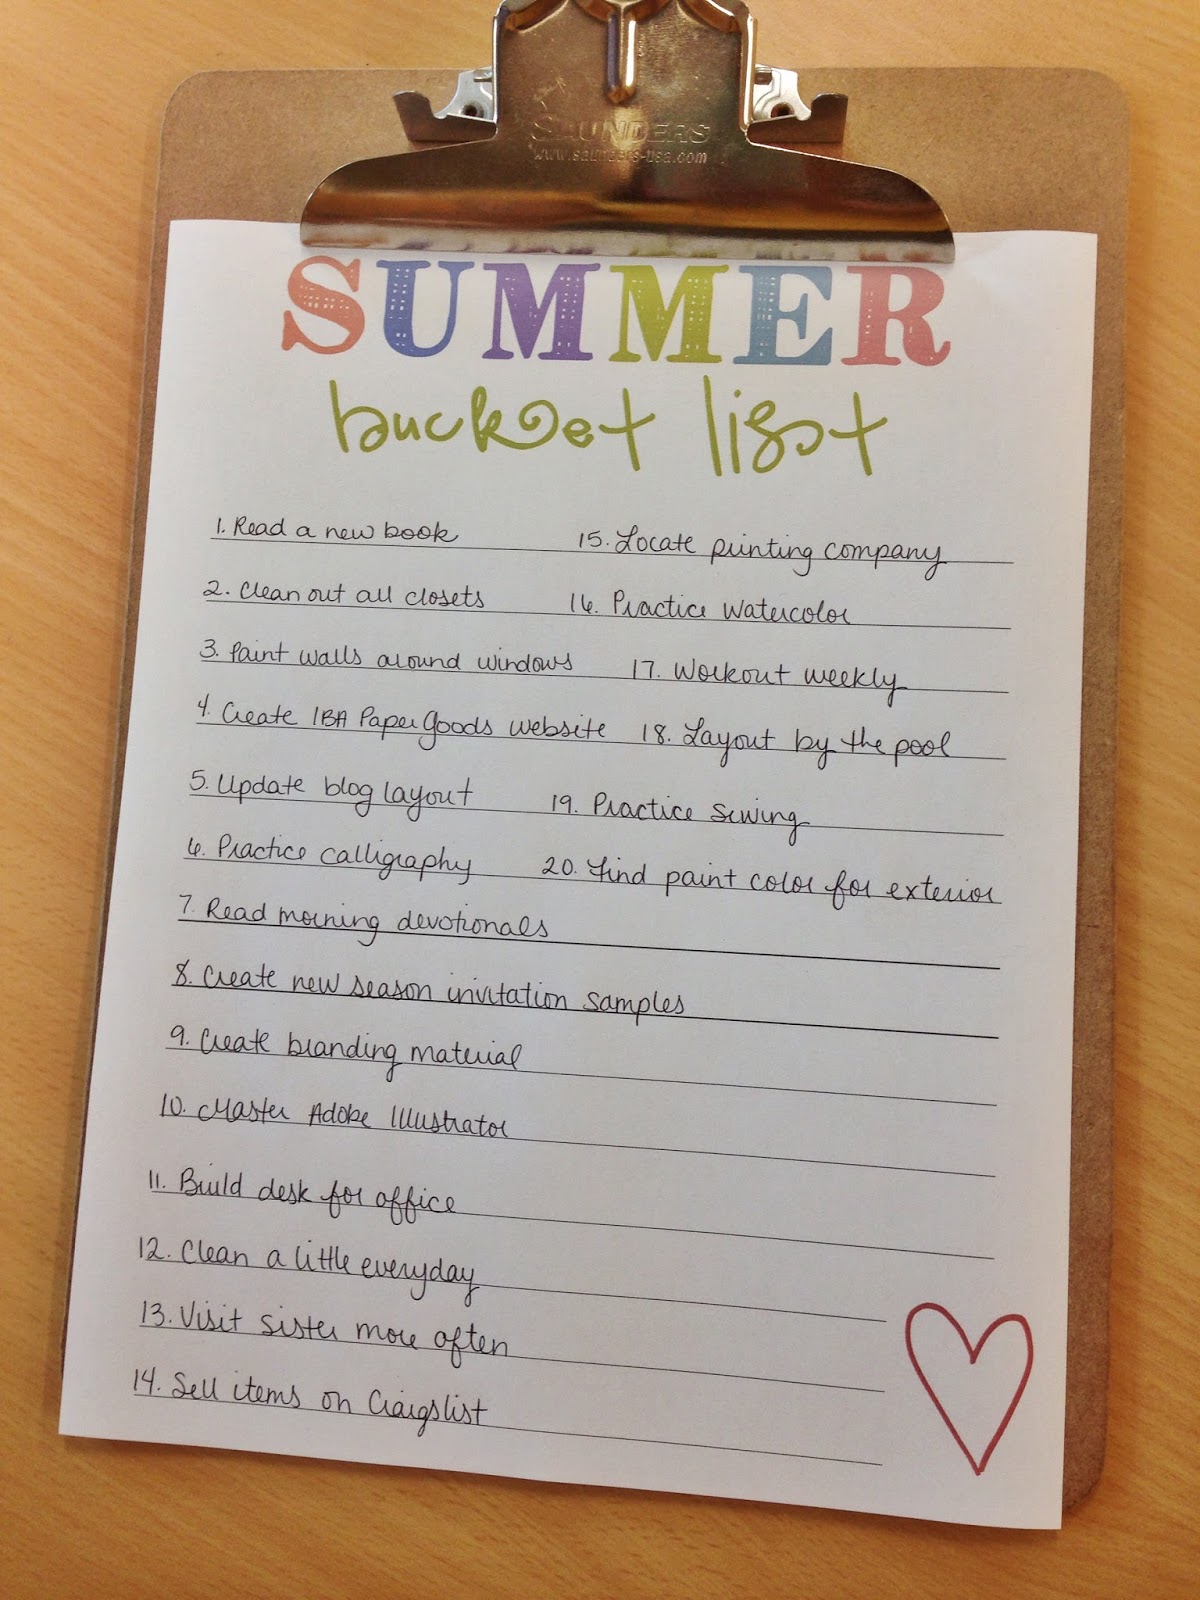 SAUNDERS
www.saunders-usa.com
SUMMER
bucket list
1. Read a new book
2. Clean out all closets
3. Paint walls around windows
4. Create IBA Paper Goods website
5. Update blog layout
6. Practice calligraphy
7. Read morning devotionals
8. Create new season invitation samples
9. Create branding material
10. Master Adobe Illustrator
11. Build desk for office
12. Clean a little everyday
13. Visit sister more often
14. Sell items on Craigslist
15. Locate printing company
16. Practice Watercolor
17. Workout weekly
18. Layout by the pool
19. Practice Sewing
20. Find paint color for exterior